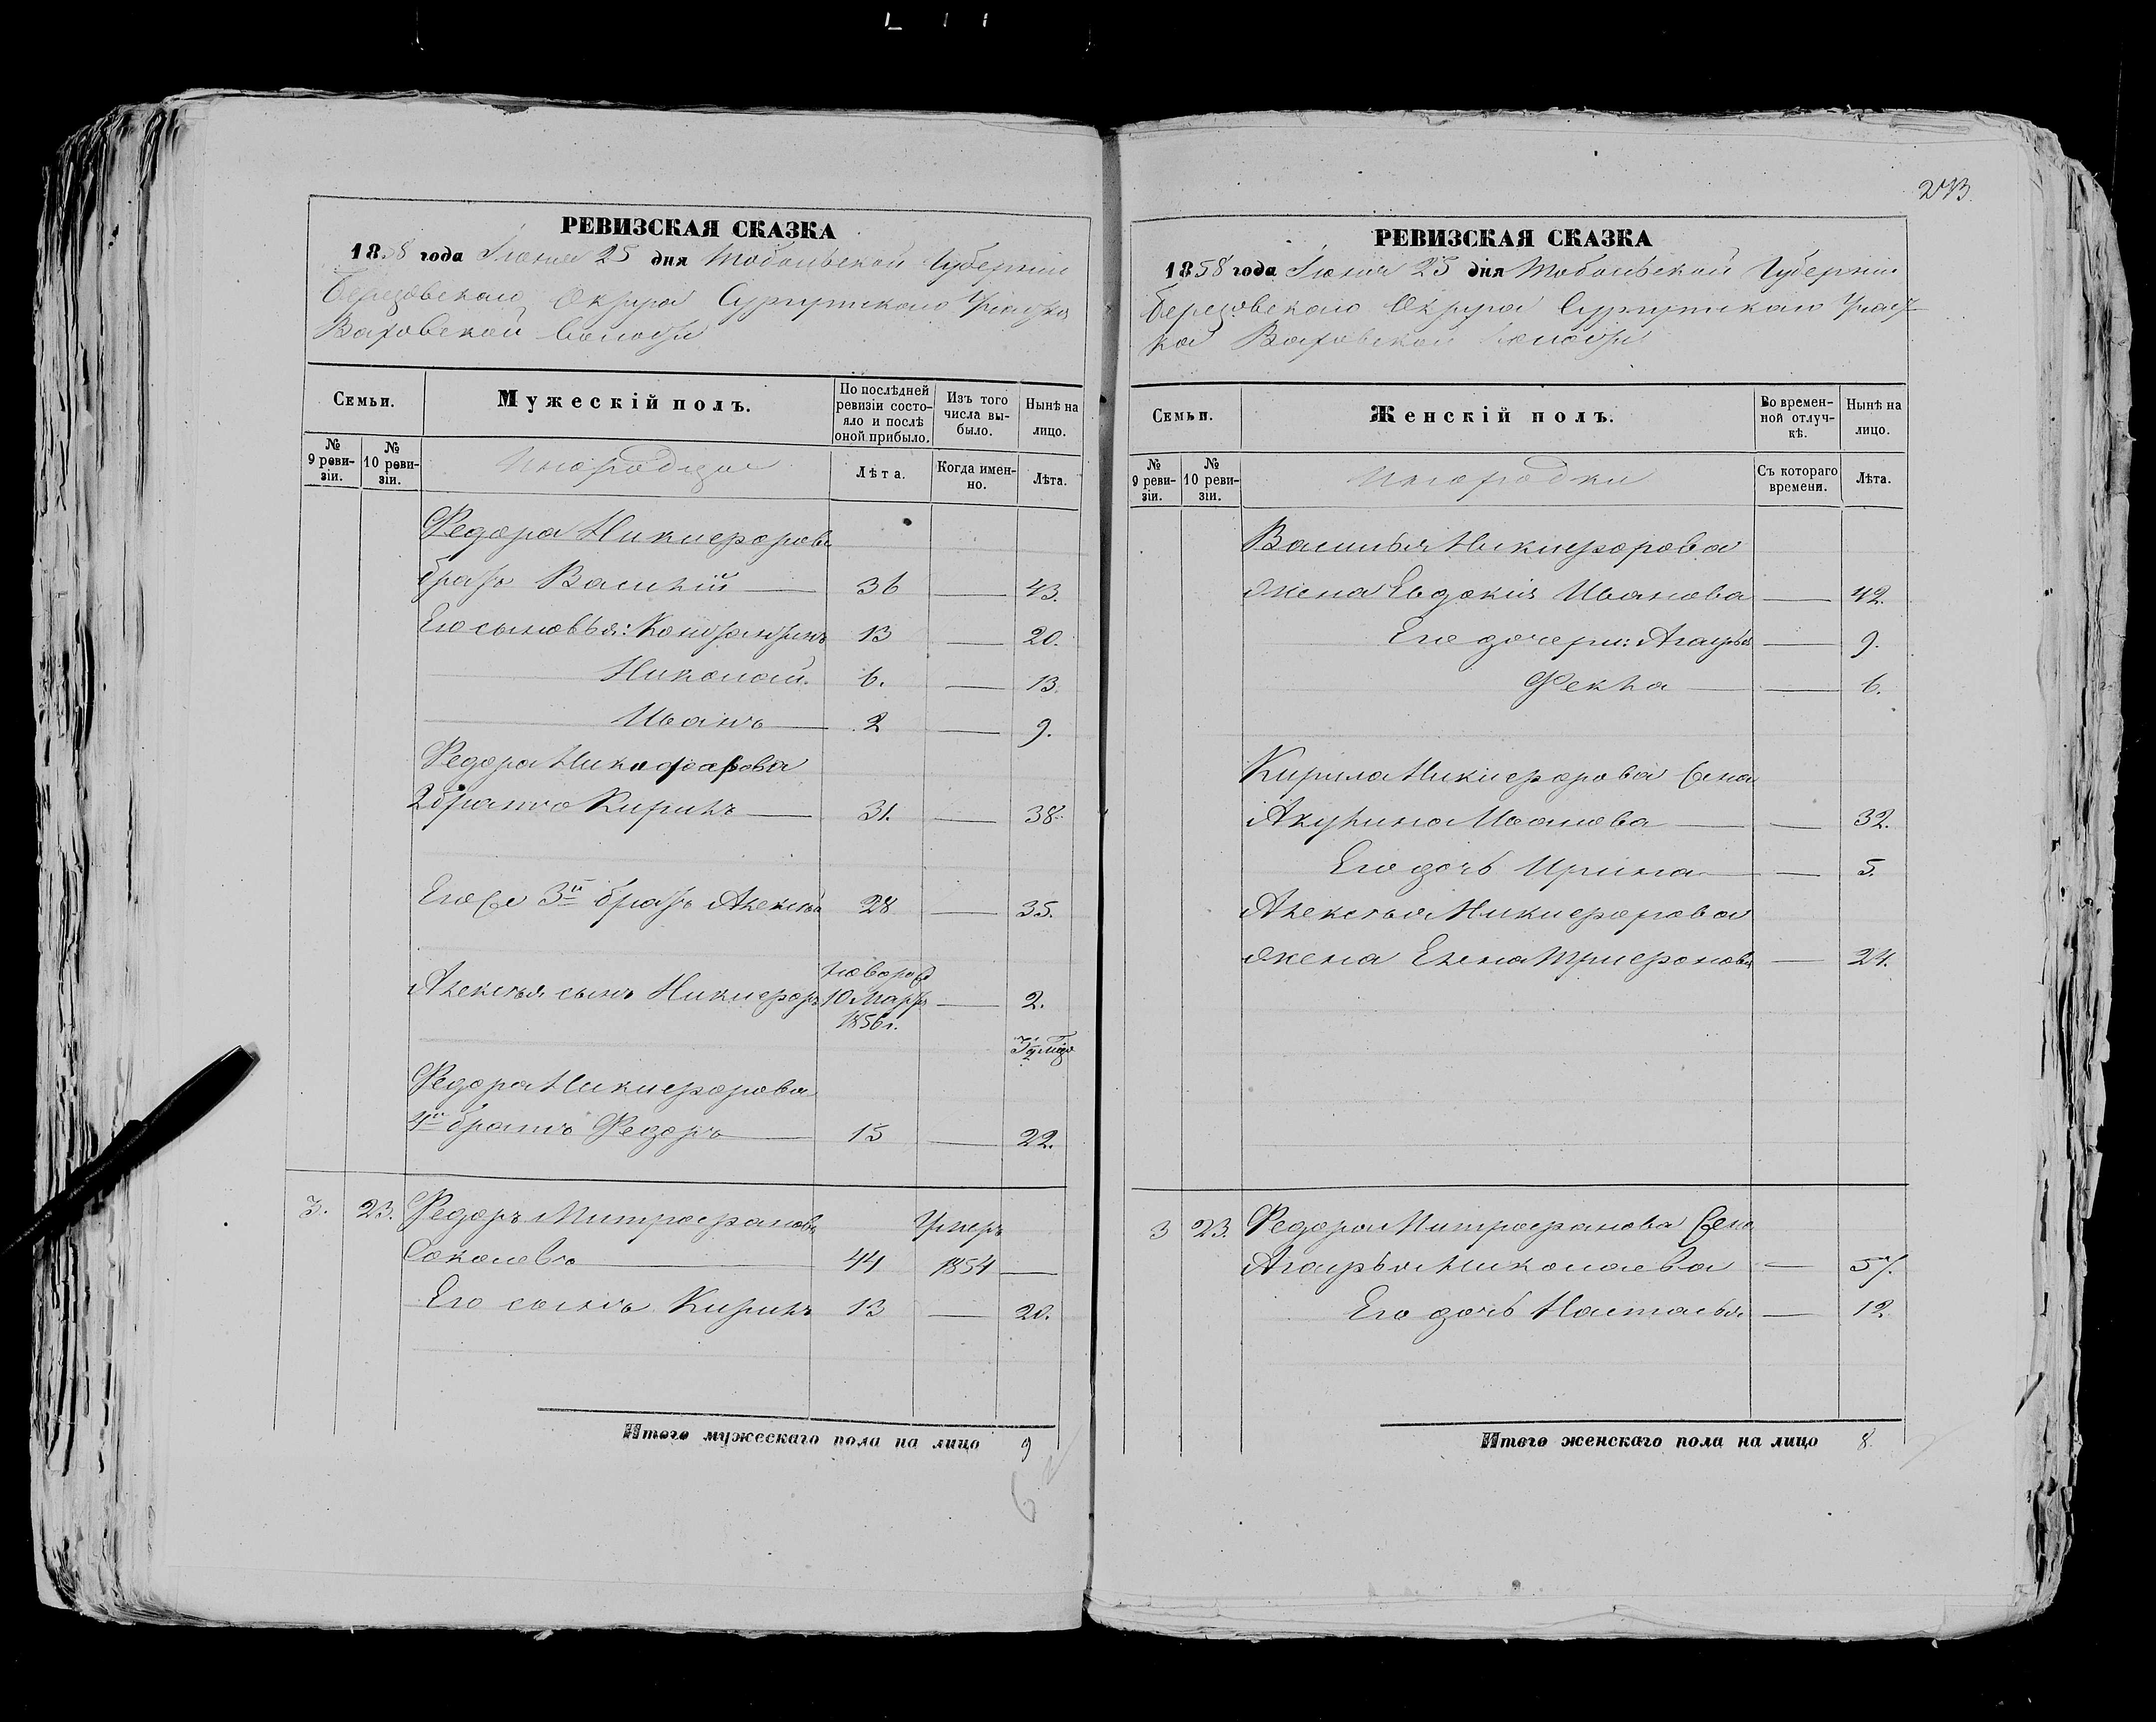 РЕВИЗСКАЯ СКАЗКА
1858 года Іюня 25 дня Тобольской Губерніи
Березовскаго Округа Сургутскаго Участка
Ваховской Волости
Семьи.
Мужескій полъ.
По послѣдней ревизіи состояло и послѣ оной прибыло.
Изъ того числа выбыло.
Нынѣ на лицо.
№ 9 ревизіи.
№ 10 ревизіи.
Инородцы
Лѣта.
Когда именно.
Лѣта.
Федора Никифорова
братъ Василій — 36 — 43.
Его сыновья: Константинъ 13 — 20.
Николай. 6. — 13.
Иванъ — 2 — 9.
Федора Никифорова
2 братъ Кирилъ — 31. — 38.
Его же 3й братъ Алексѣй 28 — 35.
Алексѣя сынъ Никифоръ новорож 10 Мартъ 1856 г. — 2.
Федора Никифорова
4й братъ Федоръ — 15 — 22.
3. 23. Федоръ Митрофановъ Умеръ
Соколовъ — 44 1854 —
Его сынъ Кирилъ 13 — 20.
Итого мужескаго пола на лицо 9
6
РЕВИЗСКАЯ СКАЗКА
1858 года Іюня 25 дня Тобольской Губерніи
Березовскаго Округа Сургутскаго Участ-
ка Ваховской Волости
Семьи.
Женскій полъ.
Во временной отлучкѣ.
Нынѣ на лицо.
№ 9 ревизіи.
№ 10 ревизіи.
Инородки
Съ котораго времени.
Лѣта.
Василья Никифорова
жена Евдокія Иванова — 42.
Его дочери: Агафья — 9.
Фекла — — 6.
Кирила Никифорова жена
Акулина Иванова — — 32.
Его дочь Ирина — — 5.
Алексѣя Никифорова
жена Елена Трифонова — 24.
3 23. Федора Митрофанова жена
Агафья Николаева — 57.
Его дочь Настасья — 12.
Итого женскаго пола на лицо 8.